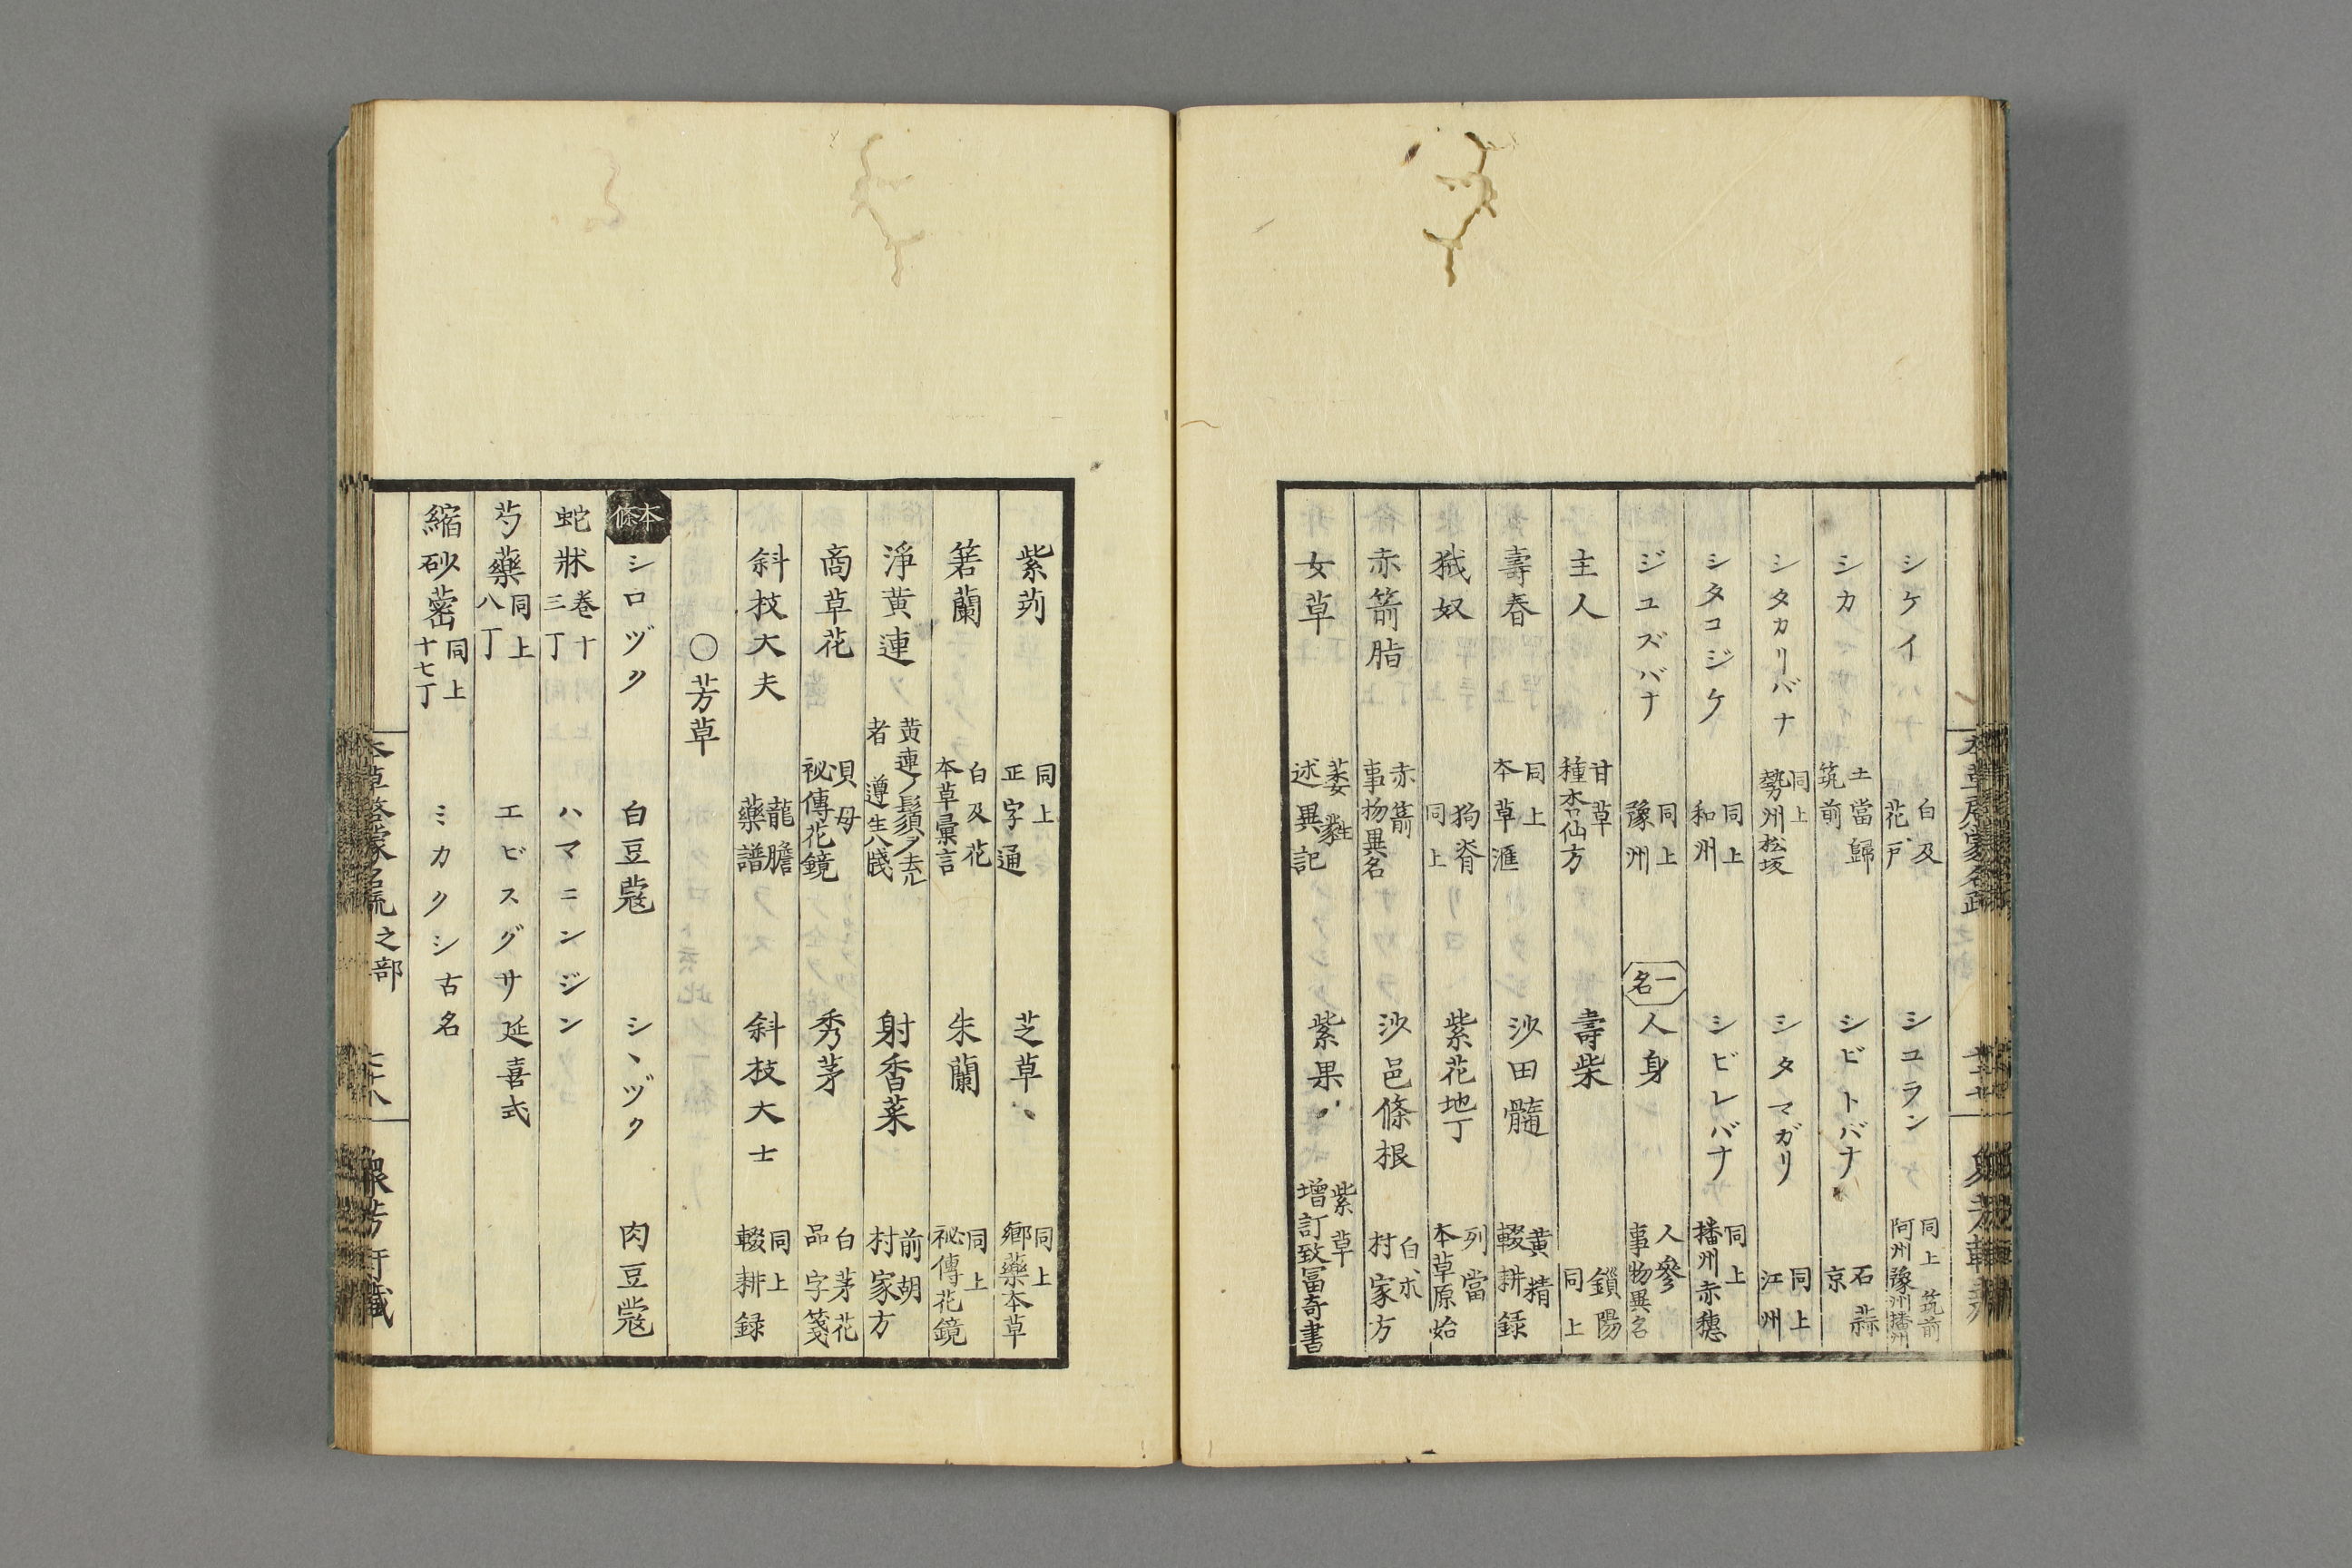 シケイ 白及 花戸 シユラン 同上 筑前 阿州豫州播州
シカ 土當歸 筑前 シビトバナ 石蒜 京
シタカリバナ 同上 勢州松坂 シタマガリ 同上 江州
シタコジケ 同上 和州 シビレバナ 同上 播州赤穗
ジユズバナ 同上 豫州 一名 人身 人參 事物異名
主人 甘草 種杏仙方 壽柴 鎖陽 同上
壽春 同上 本草滙 沙田髓 黄精 輟耕録
狘奴 狗脊 同上 紫花地丁 列當 本草原始
赤箭脂 赤箭 事物異名 沙邑條根 白朮 村家方
女草 萎蕤 述異記 紫果 紫草 增訂致富奇書
紫茢 同上 正字通 芝草 同上 鄉藥本草
箬蘭 白及花 本草彙言 朱蘭 同上 祕傳花鏡
淨黄連 黄連ノ鬚須ヲ去ル者 遵生八牋 射香菜 前胡 村家方
商草花 貝母 祕傳花鏡 秀茅 白茅花 品字箋
斜枝大夫 龍膽 藥譜 斜枝大士 同上 輟耕録
○芳草
本條 シロヅク 白豆蔻 シヽヅク 肉豆蔻
蛇牀 卷十 三丁 ハマニンジン
芍藥 同上 八丁 エビスグサ 延喜式
縮砂蔤 同上 十七丁 ミカクシ 古名
本草啓蒙名疏 之部 衆芳軒藏